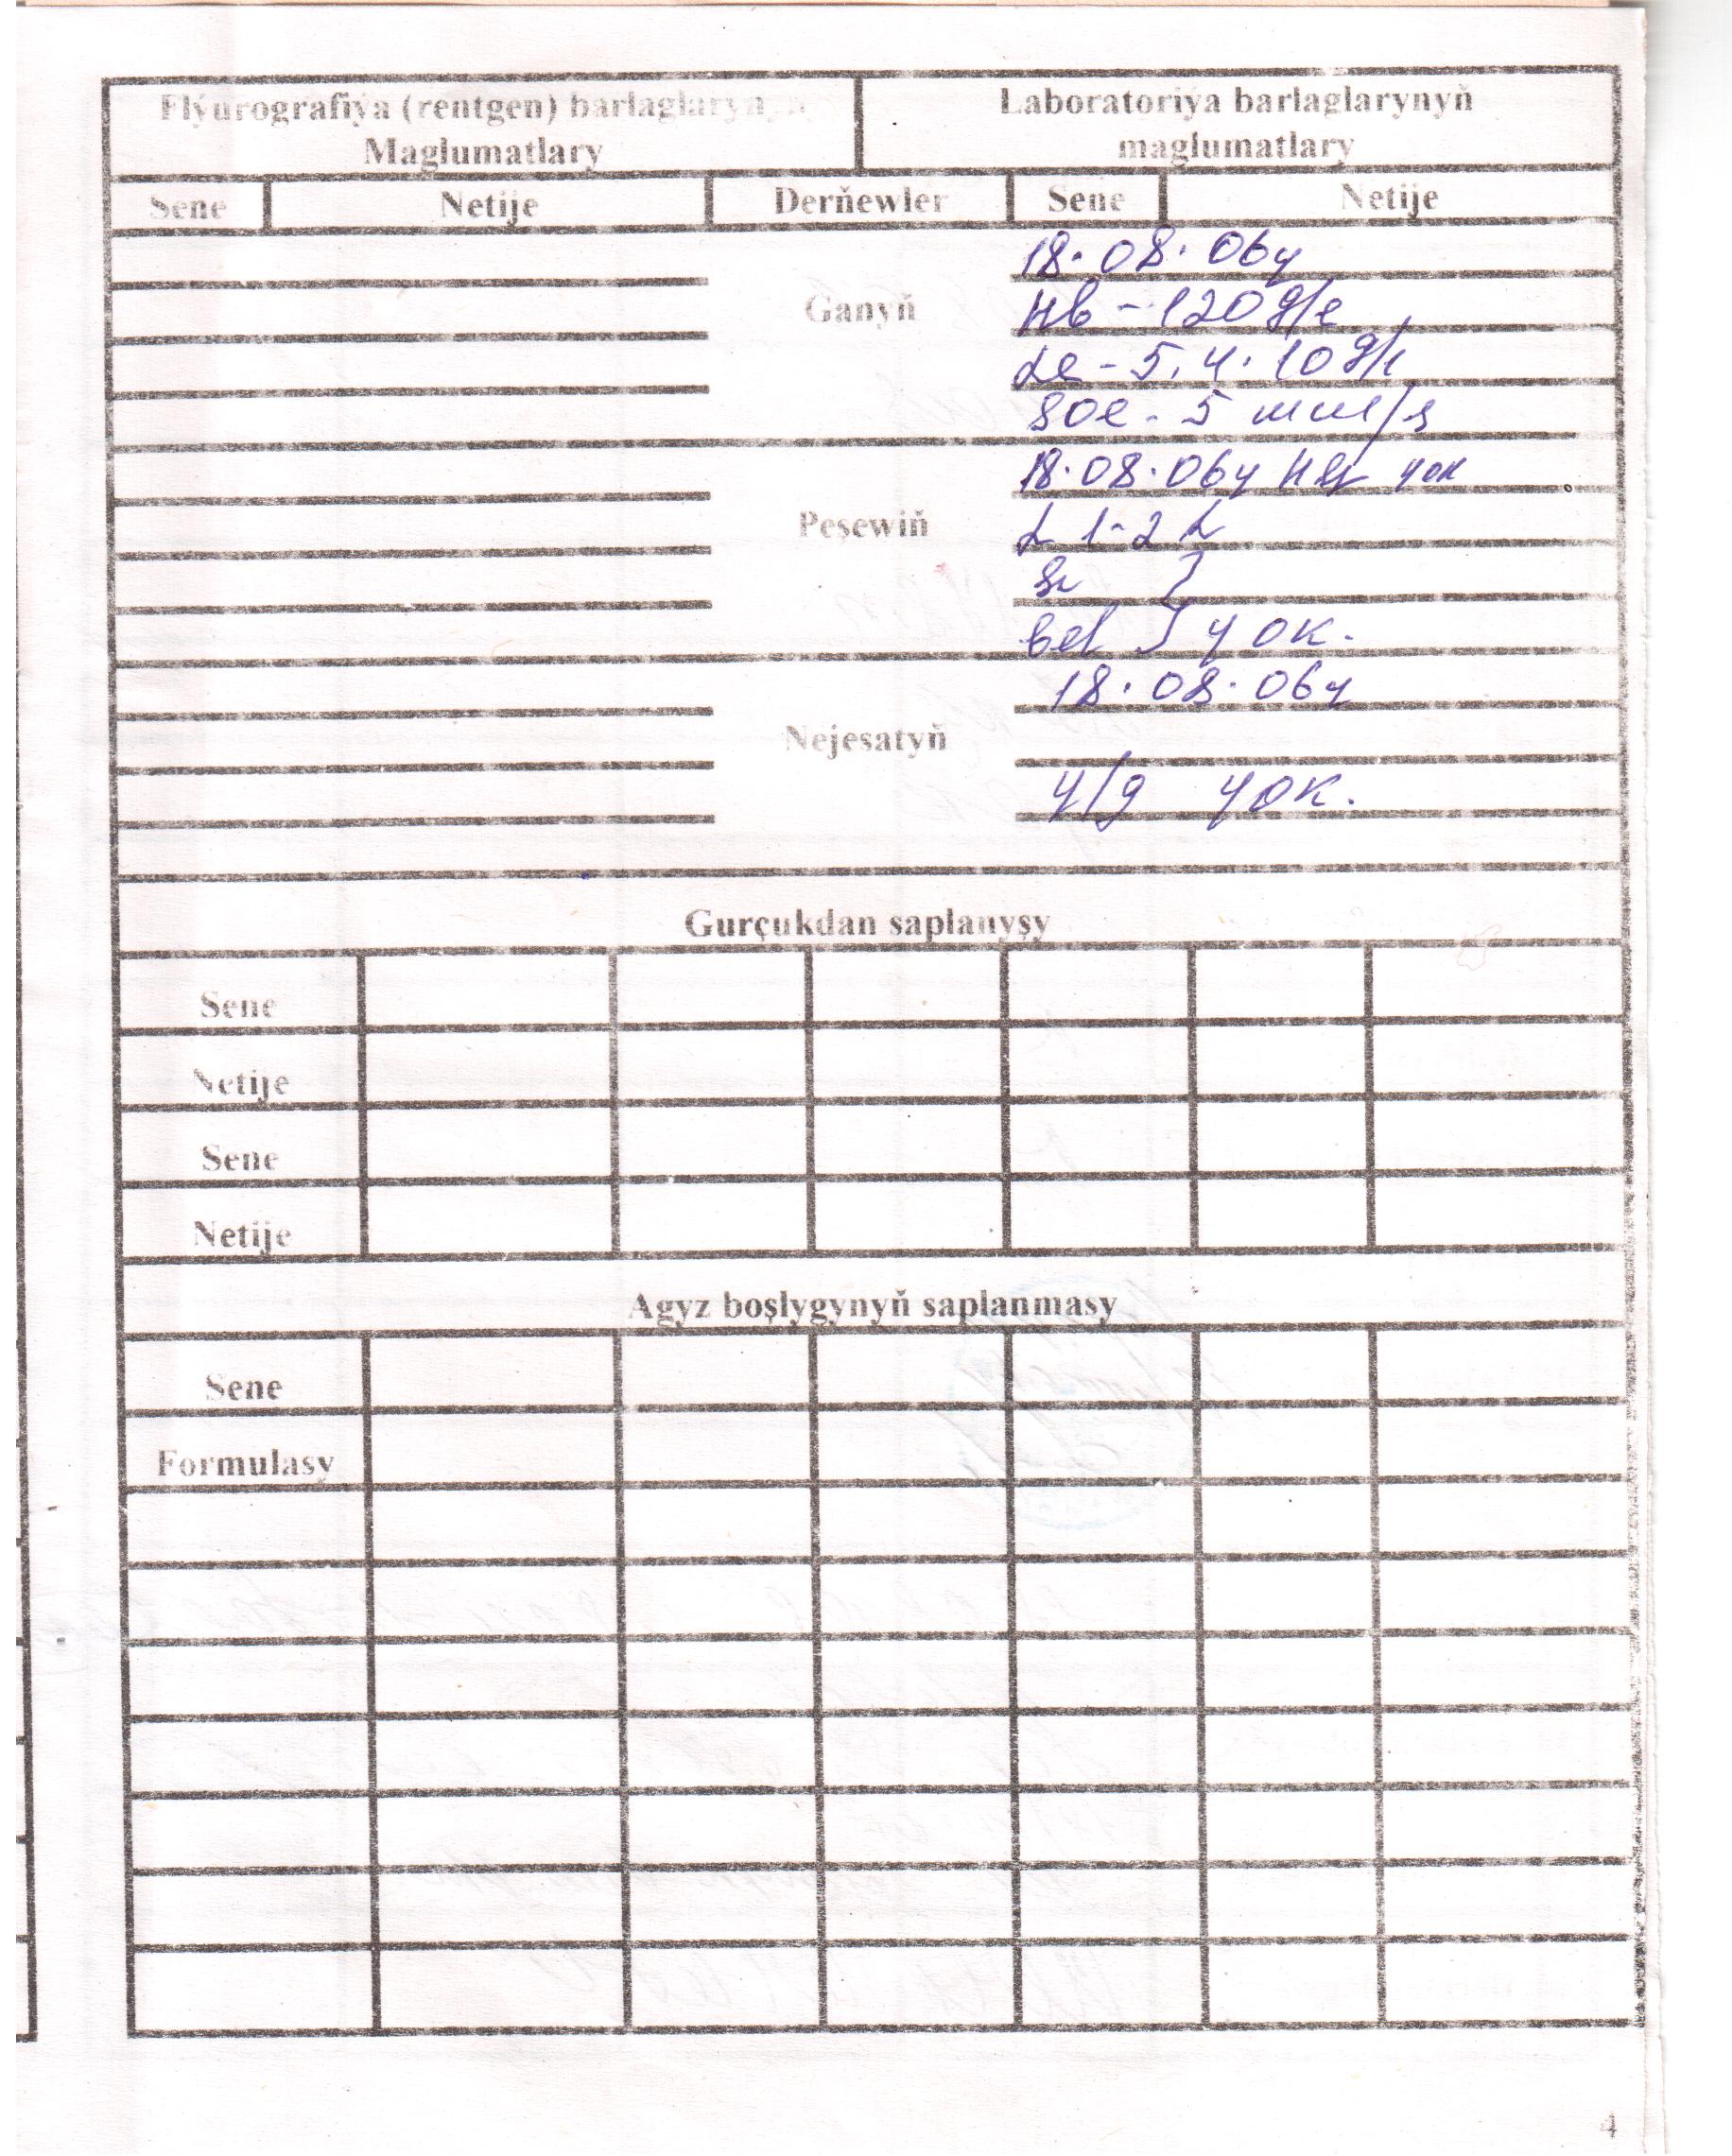 Flýurografiýa (rentgen) barlaglarynyň
Maglumatlary
Laboratoriýa barlaglarynyň
maglumatlary
Sene Netije Derňewler Sene Netije
18.08.06y
Ganyň
Hb - 120 g/l
Le - 5,4.10 g/l
SOE - 5 mm/s
18.08.06y yok
Peşewiň
L 1-2
bel } yok.
18.08.06y
Nejesatyň
y/g yok.
Gurçukdan saplanyşy
Sene
Netije
Sene
Netije
Agyz boşlygynyň saplanmasy
Sene
Formulasy
4